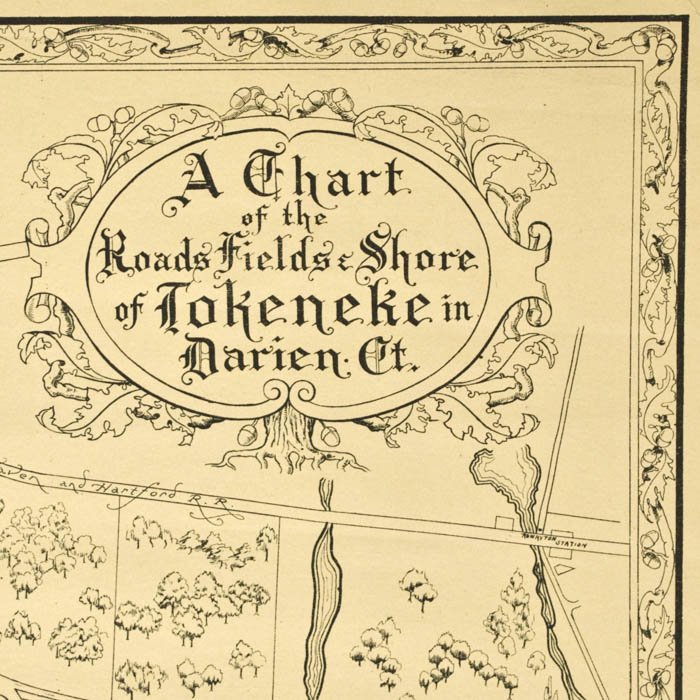 A Chart
of the
Roads Fields & Shore
of Tokeneke in
Darien. Ct.
aven and Hartford R.R.
Rowayton Station